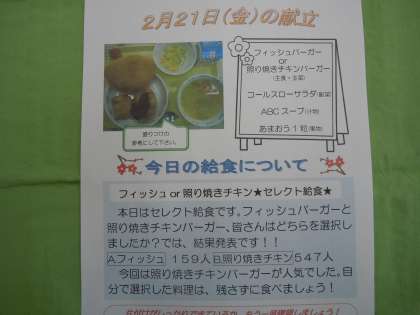 2月21日(金)の献立
フィッシュバーガー
or
照り焼きチキンバーガー
(主食・主菜)
コールスローサラダ(副菜)
ABCスープ(汁物)
あまおう1粒(果物)
盛りつけの
参考にして下さい。
今日の給食について
フィッシュor照り焼きチキン★セレクト給食★
本日はセレクト給食です。フィッシュバーガーと
照り焼きチキンバーガー、皆さんはどちらを選択し
ましたか?では、結果発表です!!
A.フィッシュ 159人 B.照り焼きチキン547人
今回は照り焼きチキンバーガーが人気でした。自
分で選択した料理は、残さずに食べましょう!